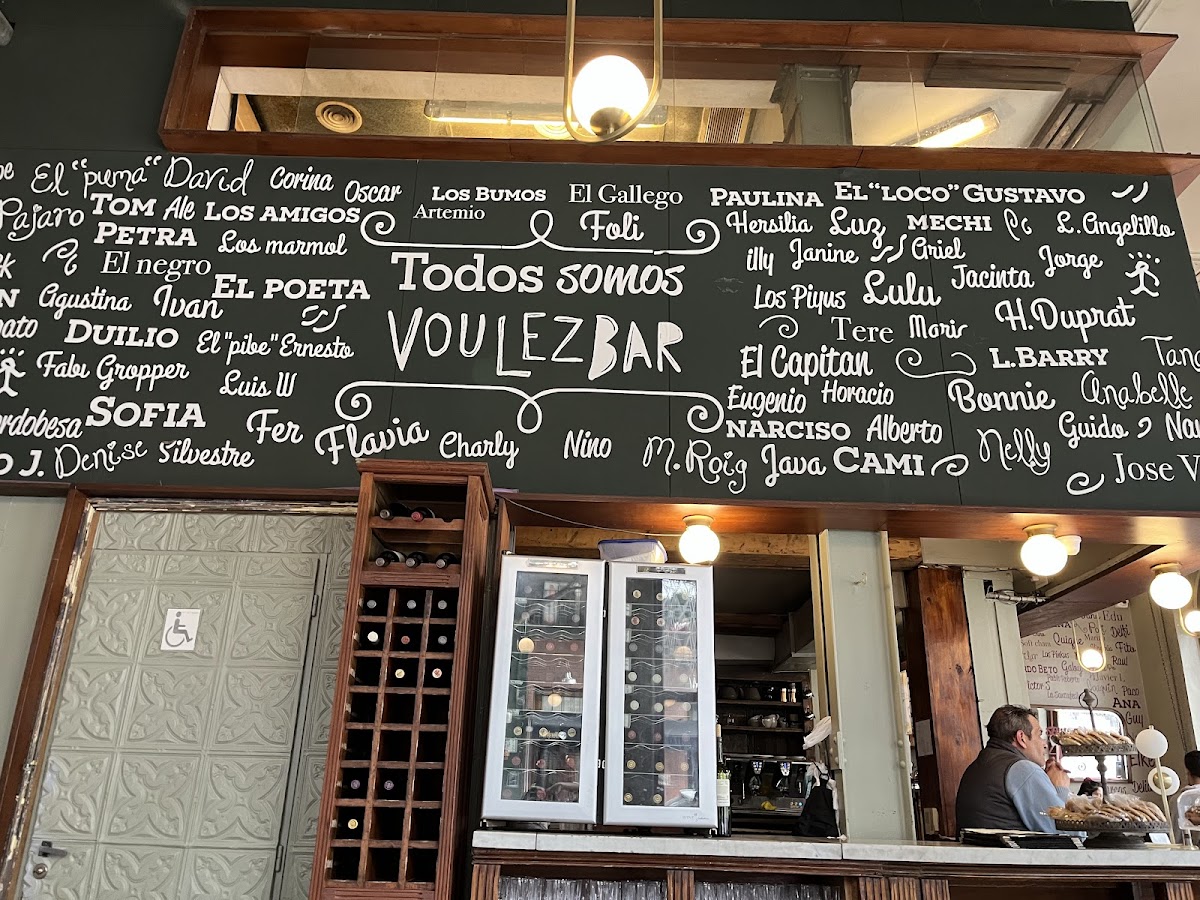 El "puma" David Corina Oscar Los Bumos El Gallego Paulina El "Loco" Gustavo
Pajaro Tom Ale Los Amigos Artemio Foli Hersilia Luz Mechi L. Angelillo
Petra Los marmol illy Janine Griel Jorge
El negro Todos somos Los Piyus Lulu Jacinta
Agustina Ivan El Poeta Tere Maris H. Duprat
Duilio El "pibe" Ernesto VOULEZBAR El Capitan L. Barry
Fabi Gropper Luis W Eugenio Horacio Bonnie Anabelle
Sofia Fer Flavia Charly Nino Narciso Alberto Nelly Guido
J. Denise Silvestre M. Roig Java Cami Jose V
Edu
Quique Delfi
Fito
Beto Raul
Victor S Javier L.
Paco
Ana
Guy